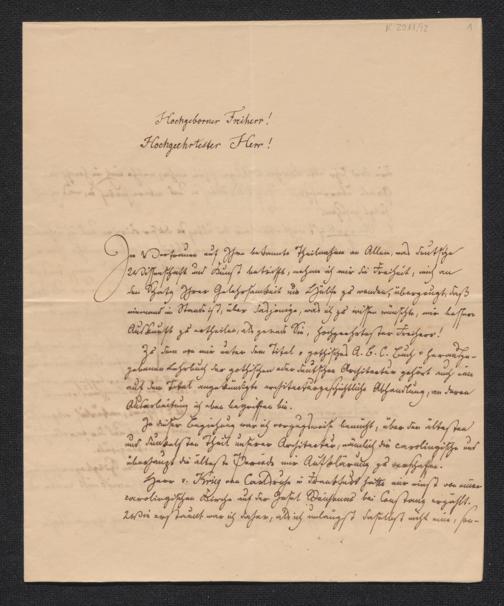 K 2911/12
1
Hochgeborner Freiherr!
Hochgeehrtester Herr!
Im Vertrauen auf Ihre bekannte Theilnahme an Allem, was deutsche
Wissenschaft und Kunst betrifft, nehme ich mir die Freiheit, mich an
den Schatz Ihrer Gelehrsamkeit und Güte zu wenden, überzeugt, daß
niemand im Stande ist, über dasjenige, was ich zu wissen wünsche, mir bessere
Auskunft zu ertheilen, als gerade Sie, hochgeehrtester Freiherr!
Zu dem von mir unter dem Titel "gothisches A.B.C. Buch" herausge-
gebenen Lehrbuch der gothischen oder deutschen Architectur gehört noch eine
auf dem Titel angekündigte architecturgeschichtliche Abhandlung, an deren
Ausarbeitung ich eben begriffen bin.
In dieser Beziehung war ich bemüht, über den ältesten
und dunkelsten Theil unserer Architectur, nämlich die carolingische und
überhaupt die älteste Periode mir Aufklärung zu verschaffen.
Herr v. Krieg aus Carlsruhe in Frankfurt hatte mir einst von einer
carolingischen Kirche auf der Insel Reichenau bei Constanz erzählt.
Wie erstaunt war ich daher, als ich unlängst daselbst nicht eine, son-